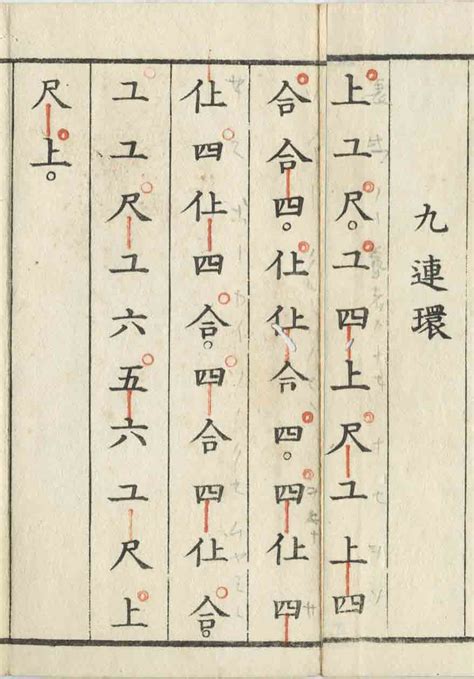 九連環
上工尺。工四上尺工上四
合合四。仩仩合四。四仩四
仩四仩四合。四合四仩合。
工工尺工六五六工尺上
尺上。